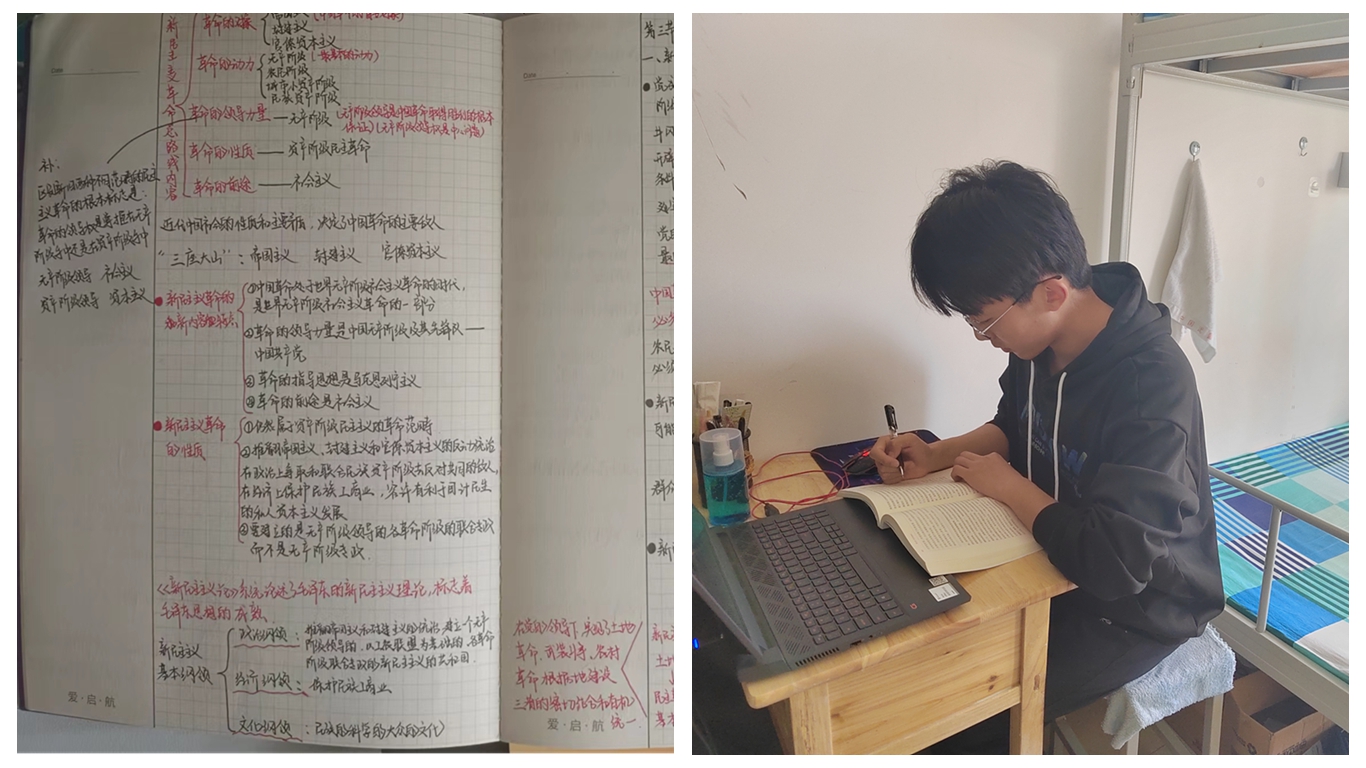 Date
新民主主义革命总路线内容
革命的对象
封建主义
官僚资本主义
革命的动力
无产阶级（最基本的动力）
农民阶级
城市小资产阶级
民族资产阶级
革命的领导力量——无产阶级（无产阶级领导是中国革命取得胜利的根本
保证）（无产阶级领导权是中心问题）
革命的性质——资产阶级民主革命
革命的前途——社会主义
补：
主义革命的根本标志是：
革命的领导权是掌握在无产
阶级手中还是在资产阶级手中
无产阶级领导 社会主义
资产阶级领导 资本主义
近代中国社会的性质和主要矛盾，决定了中国革命的主要敌人
“三座大山”：帝国主义 封建主义 官僚资本主义
新民主主义革命的
①中国革命处于世界无产阶级社会主义革命的时代，
是世界无产阶级社会主义革命的一部分
②革命的领导力量是中国无产阶级及其先锋队——
中国共产党
③革命的指导思想是马克思列宁主义
④革命的前途是社会主义
新民主主义革命
的性质
①仍然属于资产阶级民主主义的革命范畴
②推翻帝国主义、封建主义和官僚资本主义的反动统治
在政治上争取和联合民族资产阶级去反对共同的敌人，
在经济上保护民族工商业，容许有利于国计民生
的私人资本主义发展
③要建立的是无产阶级领导的各革命阶级的联合专政
而不是无产阶级专政.
《新民主主义论》系统论述了毛泽东的新民主主义理论，标志着
毛泽东思想的成熟
新民主主义
基本纲领
政治纲领：推翻帝国主义和封建主义的统治，建立一个无产
阶级领导的、以工农联盟为基础的、各革命
阶级联合专政的新民主主义的共和国.
经济纲领：保护民族工商业
文化纲领：民族的科学的大众的文化
爱·启·航
Date
在党的领导下，
革命、武装斗争、农村
革命根据地建设
三者的密切结合和有机
统一
爱·启·航
第三节
一、新
中国
必须
农民
必须
新
群众
新